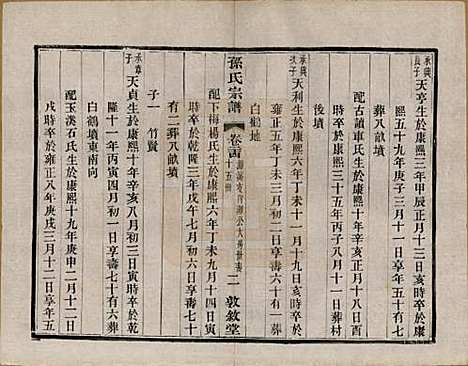 承興長子
天亨生於康熙三年甲辰正月十三日亥時卒於康
熙五十九年庚子三月十一日享年五十有七
葬八畝墳
配古嶺車氏生於康熙十年辛亥正月十八日酉
時卒於康熙三十五年丙子八月十一日葬村
後墳
承興次子
天利生於康熙六年丁未十一月十九日亥時卒於
雍正五年丁未三月初二日享壽六十有一葬
白鶴地
孫氏宗譜
卷二
十五
二
敦敘堂
配下梅楊氏生於康熙六年丁未九月十四日寅
時卒於乾隆三年戊午七月初六日享壽七十
有二葬八畝墳
子一 竹賢
承章子
天貞生於康熙十年辛亥八月初三日寅時卒於乾
隆十一年丙寅四月初一日享壽七十有六葬
白鶴墳東南向
配玉溪石氏生於康熙十九年庚申二月十二日
戌時卒於雍正八年庚戌三月十二日享年五